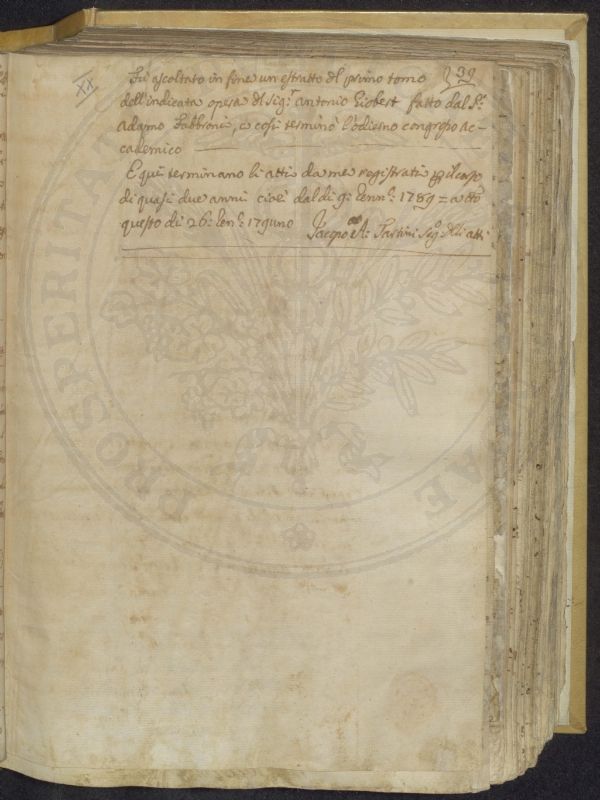 XX
39
Fù ascoltato in fine un estratto del primo tomo
dell'indicata opera del Sig.r Antonio Giobert fatto dal S.r
Adamo Fabbroni, e così terminò l'odierno congresso Ac-
cademico
E quì terminano li atti da me registrati per il corso
di quasi due anni cioè dal dì 9: Genn.o: 1789 = a tto
questo dì 26: Gen.o: 179uno
Jacopo A: Tartini Seg.o delli atti
PROSPERITA